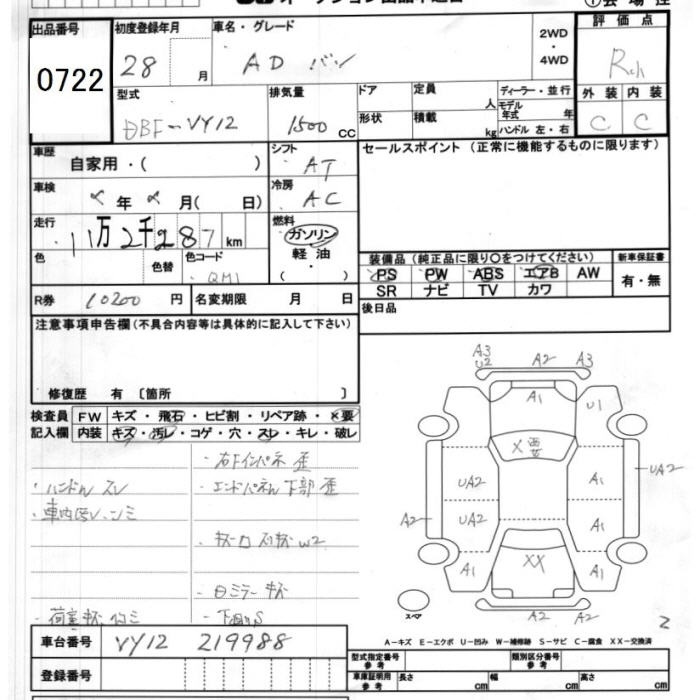 出品番号
0722
初度登録年月
28 月
車名・グレード
AD バン
2WD
・
4WD
評価点
外装 内装
C C
型式
DBF-VY12
排気量
1500 CC
ドア
形状
定員
人
積載
kg
ディーラー・並行
モデル年式 年
ハンドル 左・右
車歴
自家用・( )
シフト
AT
セールスポイント (正常に機能するものに限ります)
車検
年 月( 日)
冷房
AC
走行
11万2千287 km
燃料
ガソリン
軽油
( )
色
色替
色コード
QM1
装備品 (純正品に限り〇をつけてください)
新車保証書
PS PW ABS エアB AW
SR ナビ TV カワ
有・無
R券 10200 円
名変期限 月 日
後日品
注意事項申告欄(不具合内容等は具体的に記入して下さい)
修復歴 有 〔箇所 〕
検査員 FW キズ・飛石・ヒビ割・リペア跡・X要
記入欄 内装 キズ・汚レ・コゲ・穴・スレ・キレ・破レ
・右リインパネ 歪
・ハンドル スレ
・エンドパネル 下部 歪
・ロミラー キズ
・下回りS
A3
U2
A2
A3
A1
U1
X要
UA2
A1
UA2
A2
UA2
A1
A1
XX
A1
A2
A2
スペア
2
車台番号 VY12 219988
A-キズ E-エクボ U-凹み W-補修跡 S-サビ C-腐食 XX-交換済
登録番号
型式指定番号 参考
類別区分番号 参考
車庫証明用 参考
長さ cm
幅 cm
高さ cm